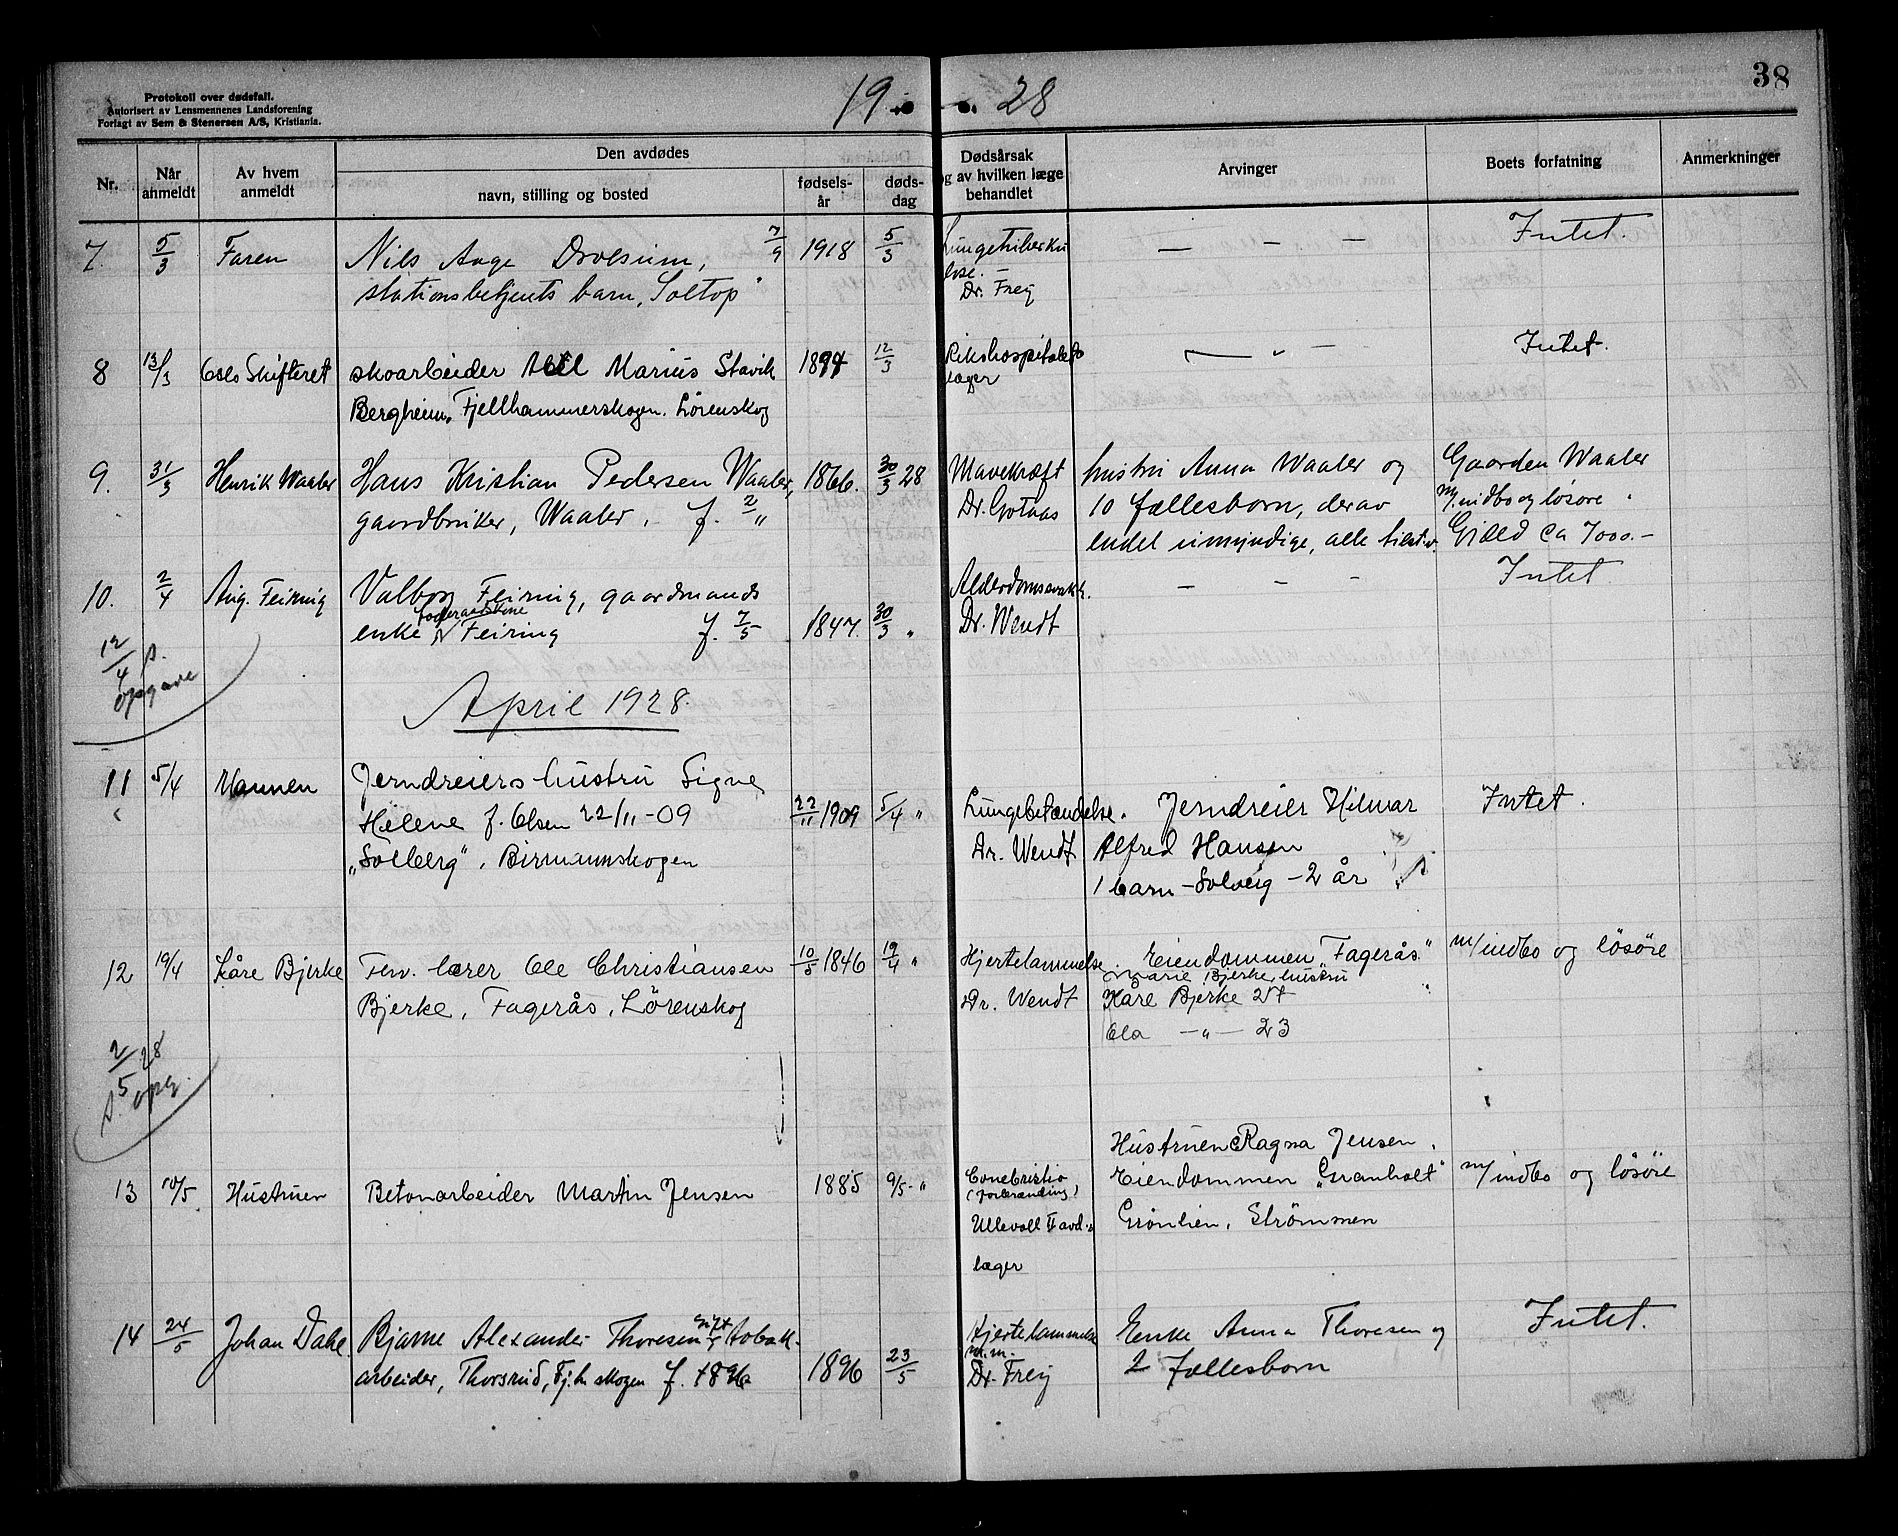 Protokoll over dødsfall.
Autorisert av Lensmennenes Landsforening
Forlagt av Sem & Stenersen A/S, Kristiania.
19 28
38
Nr. Når anmeldt Av hvem anmeldt Den avdødes navn, stilling og bosted fødselsår dødsdag Dødsårsak og av hvilken læge behandlet Arvinger Boets forfatning Anmerkninger
7. 5/3 Faren Nils Aage Drolsum, 7/9 1918 5/3 Lungetuberku — — — Intet.
lose. —
stationsbetjents barn, "Soltop" Dr. Frey
8 13/3 Oslo Skifteret skoarbeider Marius Stavik 1894 12/3 Rikshospitalets — " — Intet.
læger
Bergheim, Fjellhammerskogen. Lörenskog
9. 31/3 Henrik Waaler Hans Kristian Pedersen Waaler, 1866. 30/3 28 Mavekræft hustru Anna Waaler og Gaarden Waaler
gaardbruker, Waaler. f. 2/" Dr. Gotaas 10 fællesbarn, derav m/indbo og løsøre
endel umyndige, alle Gjæld ca 7000.-
10. 2/4 Aug. Feiring Valborg Feiring, gaardmands Alderdomssvakh. — — — Intet
enke Feiring f. 7/5 1847. 30/3 " Dr. Wendt
12/4 s.
opgave
April 1928.
11 5/4 Mannen Jerndreiers hustru Signe
Helene f. Olsen 22/11-09 22/11 1909 5/4 " Lungebetændelse. Jerndreier Hilmar Intet.
"Solberg", Birmannskogen Dr. Wendt Alfred Hansen
1 barn - Solveig - 2 år
12 19/4 Kåre Bjerke Ferv. lærer Ole Christiansen 10/5 1846 19/4 " Hjertelammelse. Eiendommen "Fagerås" m/indbo og lösöre
Marie Bjerke, hustru
Bjerke, Fagerås, Lörenskog Dr. Wendt Kåre Bjerke 27
Ola —"— 23
2/5 28
s. opg.
Hustruen Ragna Jensen.
13 10/5 Hustruen Betonarbeider Martin Jensen 1885 9/5 - " Eiendommen "Granholt" m/indbo og lösöre
(forbrænding)
Ullevoll Grönlien, Strömmen
læger
14 24/5 Johan Dahl. Bjarne Alexander Thoresen gift tobak- Hjertelammelse Enke Anna Thoresen og Intet.
m.m.
arbeider, Thorsrud, Fj.h. skogen f. 1896 1896 23/5 Dr. Frey 2 fællesbarn